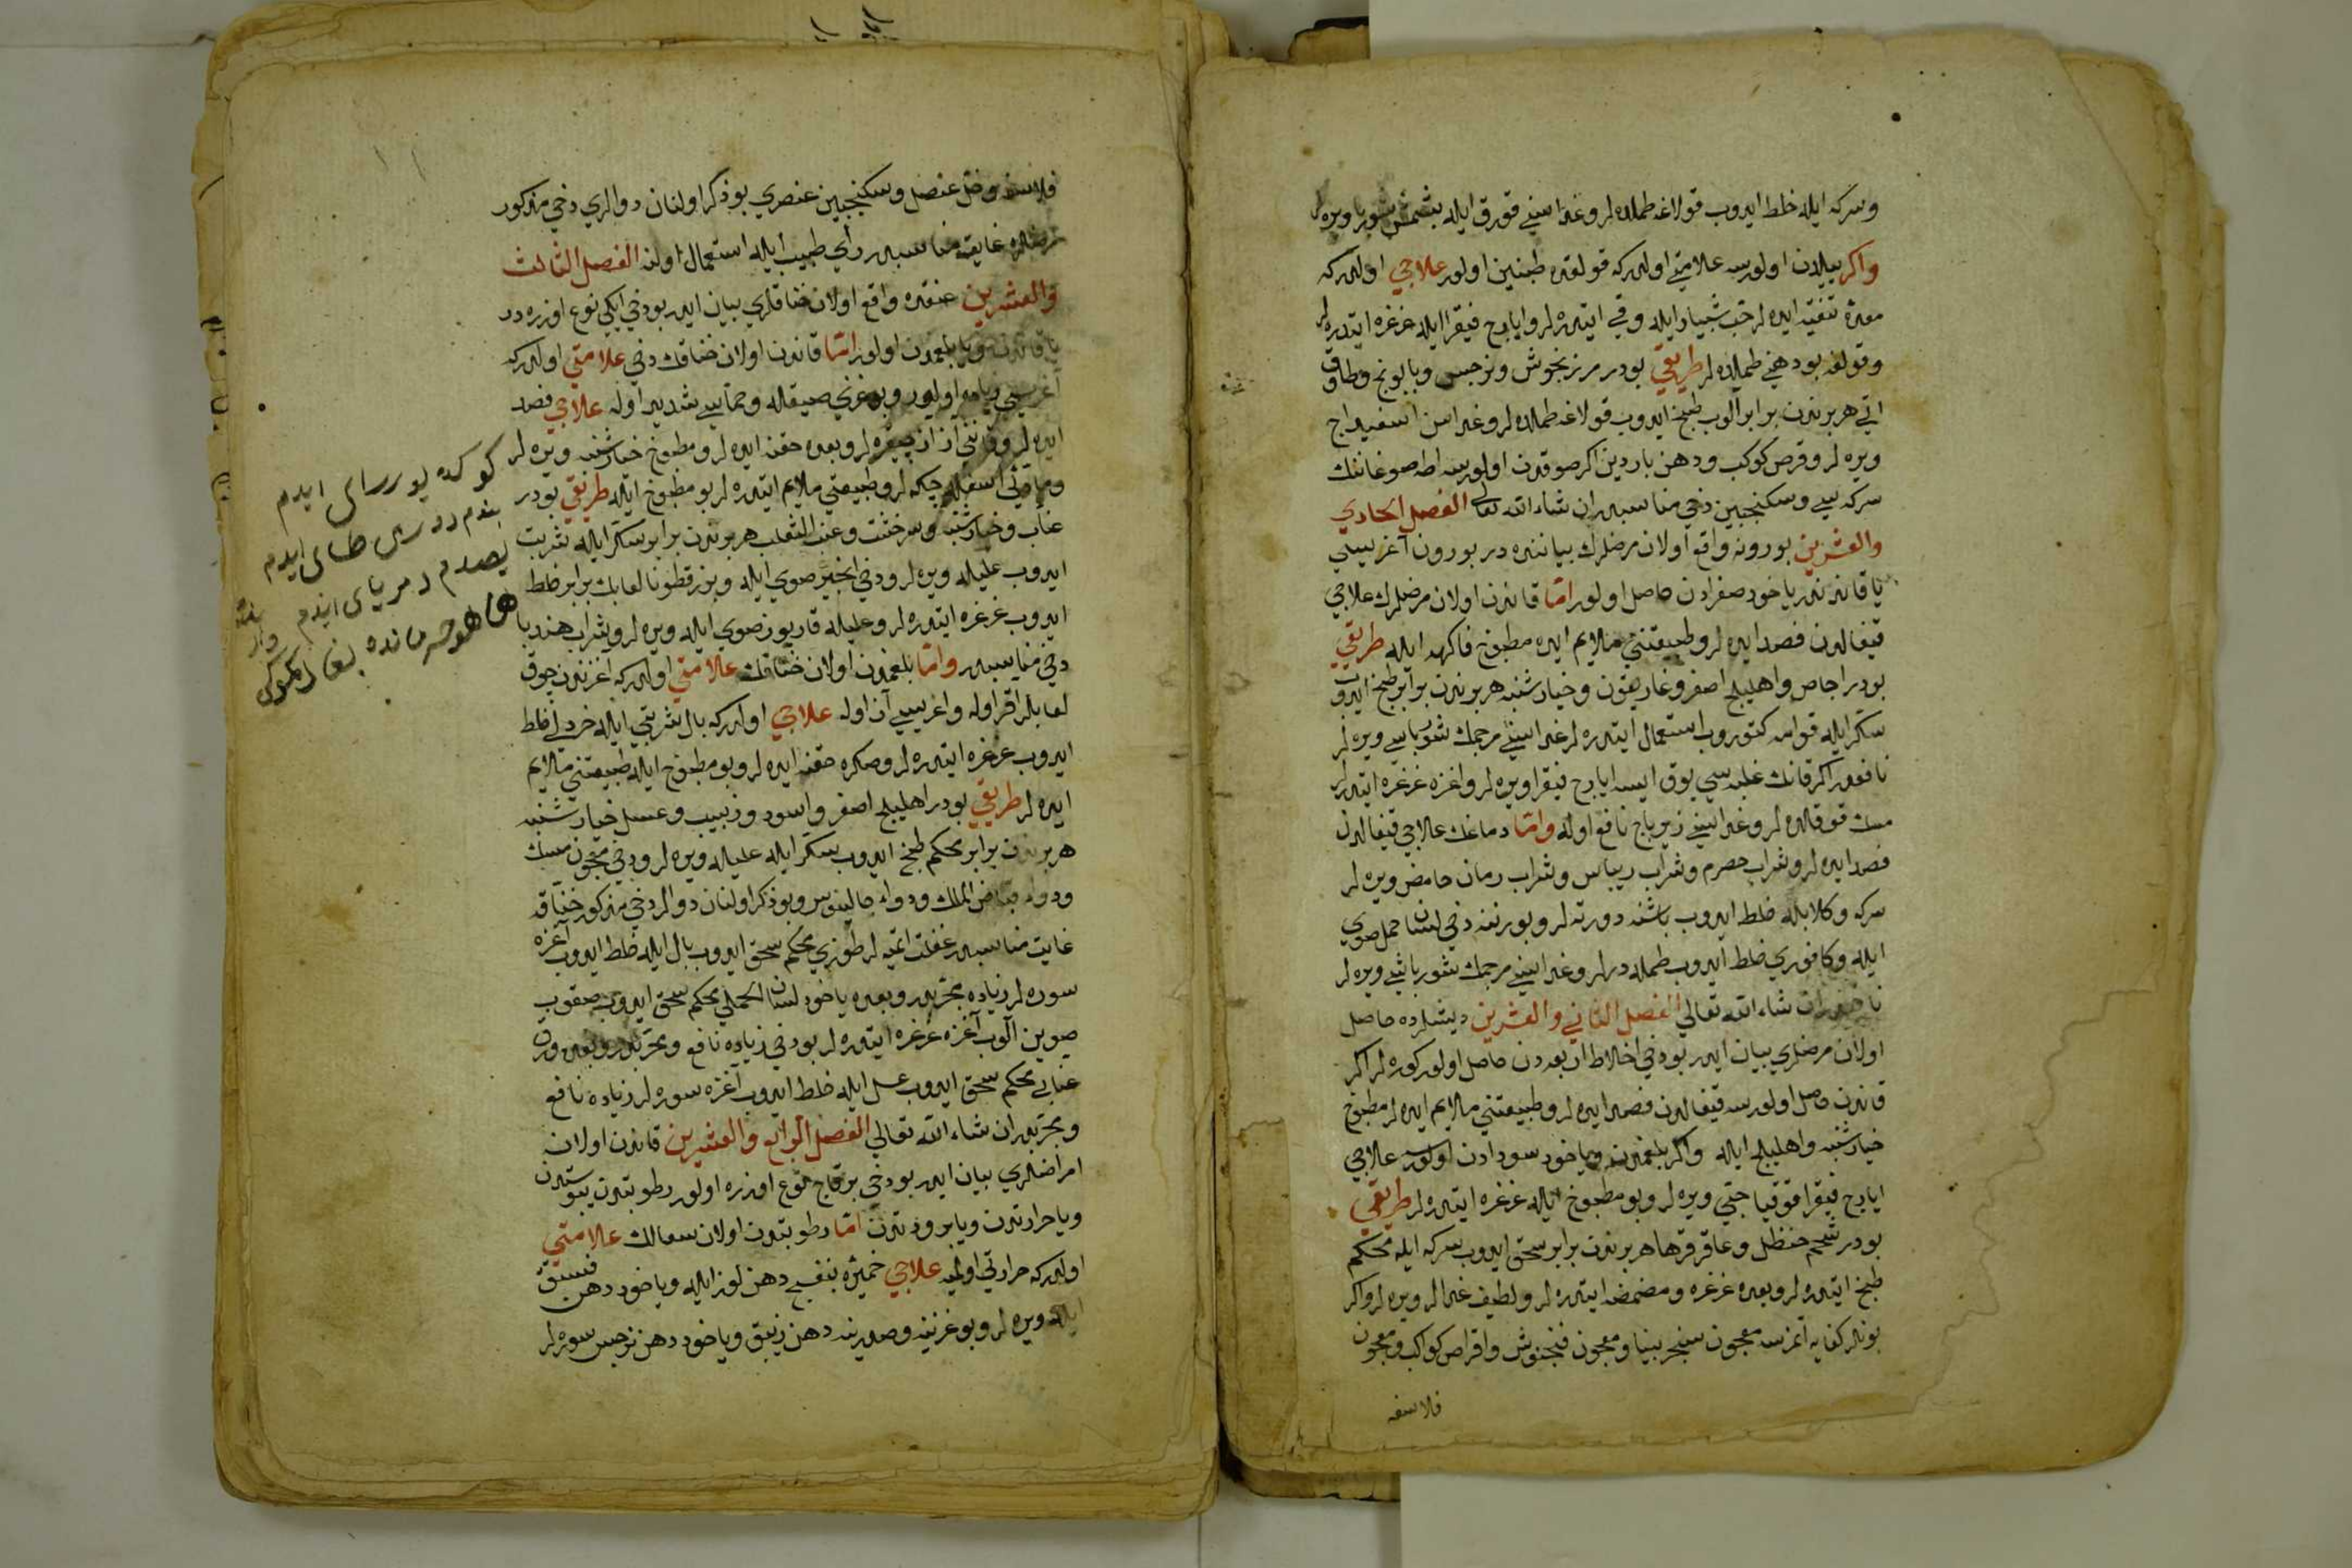 وسركه ايله خلط ايدوب قولاغه طملده لر وغداسني قورق ايله بشمش شوربا ويره لر
واكر ييلدن اولورسه علامتي اولدركه قولقده طنين اولور علاجي اولدركه
معده تنقيه ايده لر حب شبيار ايله وقي ايتدره لر وايارج فيقرا ايله غرغره ايتدره لر
وقولغه بو دهني طملده لر طريقي بودر مرزنجوش ونرجس وبابونج
اتي هر برندن برابر آلوب طبخ ايدوب قولاغه طملده لر وغداسن اسفيداج
ويره لر وقرص كوكب ودهن باردين اكر صوقدن اولورسه اطه صوغاننك
سركه سي وسكنجبين دخي مناسبدر ان شاء الله تعالى الفصل الحادي
والعشرين بورونه واقع اولان مرضلرك بياننده در بورون آغريسي
يا قاندندر ياخود صفرادن حاصل اولور امّا قاندن اولان مرضلرك علاجي
قيفالدن فصد ايده لر وطبيعتني ملايم ايده مطبوخ فاكهه ايله طريقي
بودر اجاص واهليلج اصفر وغاريقون وخيارشنبه هر برندن برابر طبخ ايدوب
سكر ايله قوامه كتوروب استعمال ايتدره لر غداسني مرجمك شورباسي ويره لر
نافعدر اكر قانك غلبه سي يوق ايسه ايارج فيقرا ويره لر واغزه غرغره ايتدره لر
مسك قوقلده لر وغداسني زيرباج نافع اوله وامّا دماغك علاجي قيفالدن
فصد ايده لر وشراب حصرم وشراب ريباس وشراب رمان حامض ويره لر
سركه وكلابله خلط ايدوب باشنه دورته لر وبورننه دخي لسان حمل صويي
ايله وكافوري خلط ايدوب طمله در لر وغداسني مرجمك شورباسي ويره لر
نافعدر ان شاء الله تعالى الفصل الثاني والعشرين ديشلرده حاصل
اولان مرضلري بيان ايدر بودخي اخلاط اربعه دن حاصل اولور كوره لر اكر
قاندن حاصل اولورسه قيفالدن فصد ايده لر وطبيعتني ملايم ايده لر مطبوخ
خيارشنبه واهليلج ايله واكر بلغمدن وياخود سودادن اولورسه علاجي
ايارج فيقرا قوقيا حبي ويره لر وبو مطبوخ ايله غرغره ايتدره لر طريقي
بودر شحم حنظل وعاقرقرها هر برندن برابر سحق ايدوب سركه ايله محكم
طبخ ايتدره لر وبعده غرغره ومضمضه ايتدره لر ولطيف غدالر ويره لر واكر
بونلر كفايه اتمزسه معجون سنجرنيا ومعجون فنجنوش واقراص كواكب ومعجون
فلاسفه
فلاسفه وخل عنصل وسكنجبين عنصري بو ذكر اولنان دوالري دخي مذكور
مرضلره غايت مناسبدر رأي طبيب ايله استعمال اولنه الفصل الثالث
والعشرين عنقده واقع اولان خناقلري بيان ايدر بودخي ايكي نوع اوزره در
يا قاندن ويا بلغمدن اولور امّا قاندن اولان خناقك دخي علامتي اولدركه
آغريسي زياده اوليور وبوغزي صيقله وحماسي شديد اوله علاجي فصد
ايده لر وقانني از از چيقره لر وبعده حقنه ايده لر ومطبوخ خيارشنبه ويره لر
وماده ئي اسفله چكه لر وطبيعتي ملايم ايتدره لر بو مطبوخ ايله طريقي بودر
عناب وخيارشنبه وشيرخشت وعنب الثعلب هر برندن برابر سكر ايله شربت
ايدوب عليله ويره لر ودخي انجير صويي ايله وبزرقطونا لعابك برابر خلط
ايدوب غرغره ايتدره لر وعليله قاربوز صويي ايله ويره لر وشراب هندبا
دخي مناسبدر وامّا بلغمدن اولان خناقك علامتي اولدركه آغزندن چوق
لعابلر اقر اوله واغريسي آز اوله علاجي اولدركه بال شربتي ايله خردلي خلط
ايدوب غرغره ايتدره لر وصكره حقنه ايده لر وبو مطبوخ ايله طبيعتني ملايم
ايده لر طريقي بودر اهليلج اصفر واسود وزبيب وعسل خيارشنبه
هر برندن برابر محكم طبخ ايدوب سكر ايله عليله ويره لر ودخي معجون مسك
ودواء فياض الملك ودواء جالينوس وبو ذكر اولنان دوالر دخي مذكور خناقه
غايت مناسبدر غفلت اتميه لر طوزي محكم سحق ايدوب بال ايله خلط ايدوب آغزه
سوره لر زياده مجربدر وبعده ياخود لسان الحملي محكم سحق ايدوب صقوب
صوين آلوب آغزه غرغره ايتدره لر بودخي زياده نافع ومجربدر وبعده ورق
عنابي محكم سحق ايدوب عسل ايله خلط ايدوب آغزه سوره لر زياده نافع
ومجربدر ان شاء الله تعالى الفصل الرابع والعشرين قاندن اولان
امراضلري بيان ايدر بودخي بر قاچ نوع اوزره اولور رطوبتدن يبوستدن
ويا حرارتدن ويا برودتدن امّا رطوبتدن اولان سعالك علامتي
اولدركه حرارتي اولميه علاجي خميره بنفسج دهن لوز ايله وياخود دهن فستق
ايله ويره لر وبوغزينه وصدرينه دهن زنبق وياخود دهن نرجس سوره لر